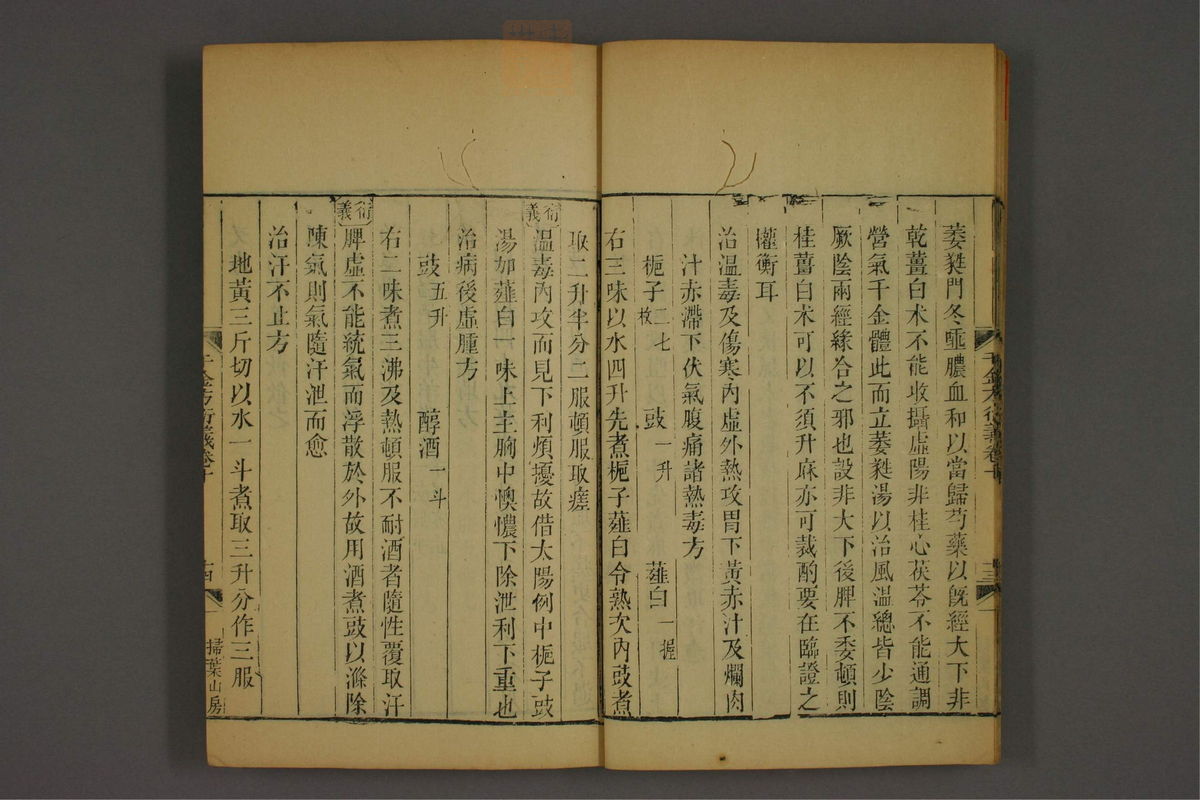 千金方衍義卷十
十三
萎蕤門冬唾膿血和以當歸芍藥以旣經大下非
乾薑白朮不能收攝虛陽非桂心茯苓不能通調
營氣千金體此而立萎蕤湯以治風溫總皆少陰
厥陰兩經緣合之邪也設非大下後脾不委頓則
桂薑白朮可以不須升麻亦可裁酌要在臨證之
權衡耳
治溫毒及傷寒內虛外熱攻胃下黃赤汁及爛肉
汁赤滯下伏氣腹痛諸熱毒方
梔子二七枚 豉一升 薤白一握
右三味以水四升先煮梔子薤白令熟次內豉煮
取二升半分二服頓服取瘥
衍義
溫毒內攻而見下利煩擾故借太陽例中梔子豉
湯加薤白一味上主胸中懊憹下除泄利下重也
治病後虛腫方
豉五升 醇酒一斗
右二味煮三沸及熱頓服不耐酒者隨性覆取汗
衍義
脾虛不能統氣而浮散於外故用酒煮豉以滌除
陳氣則氣隨汗泄而愈
治汗不止方
地黃三斤切以水一斗煮取三升分作三服
千金方衍義卷十
十四
掃葉山房